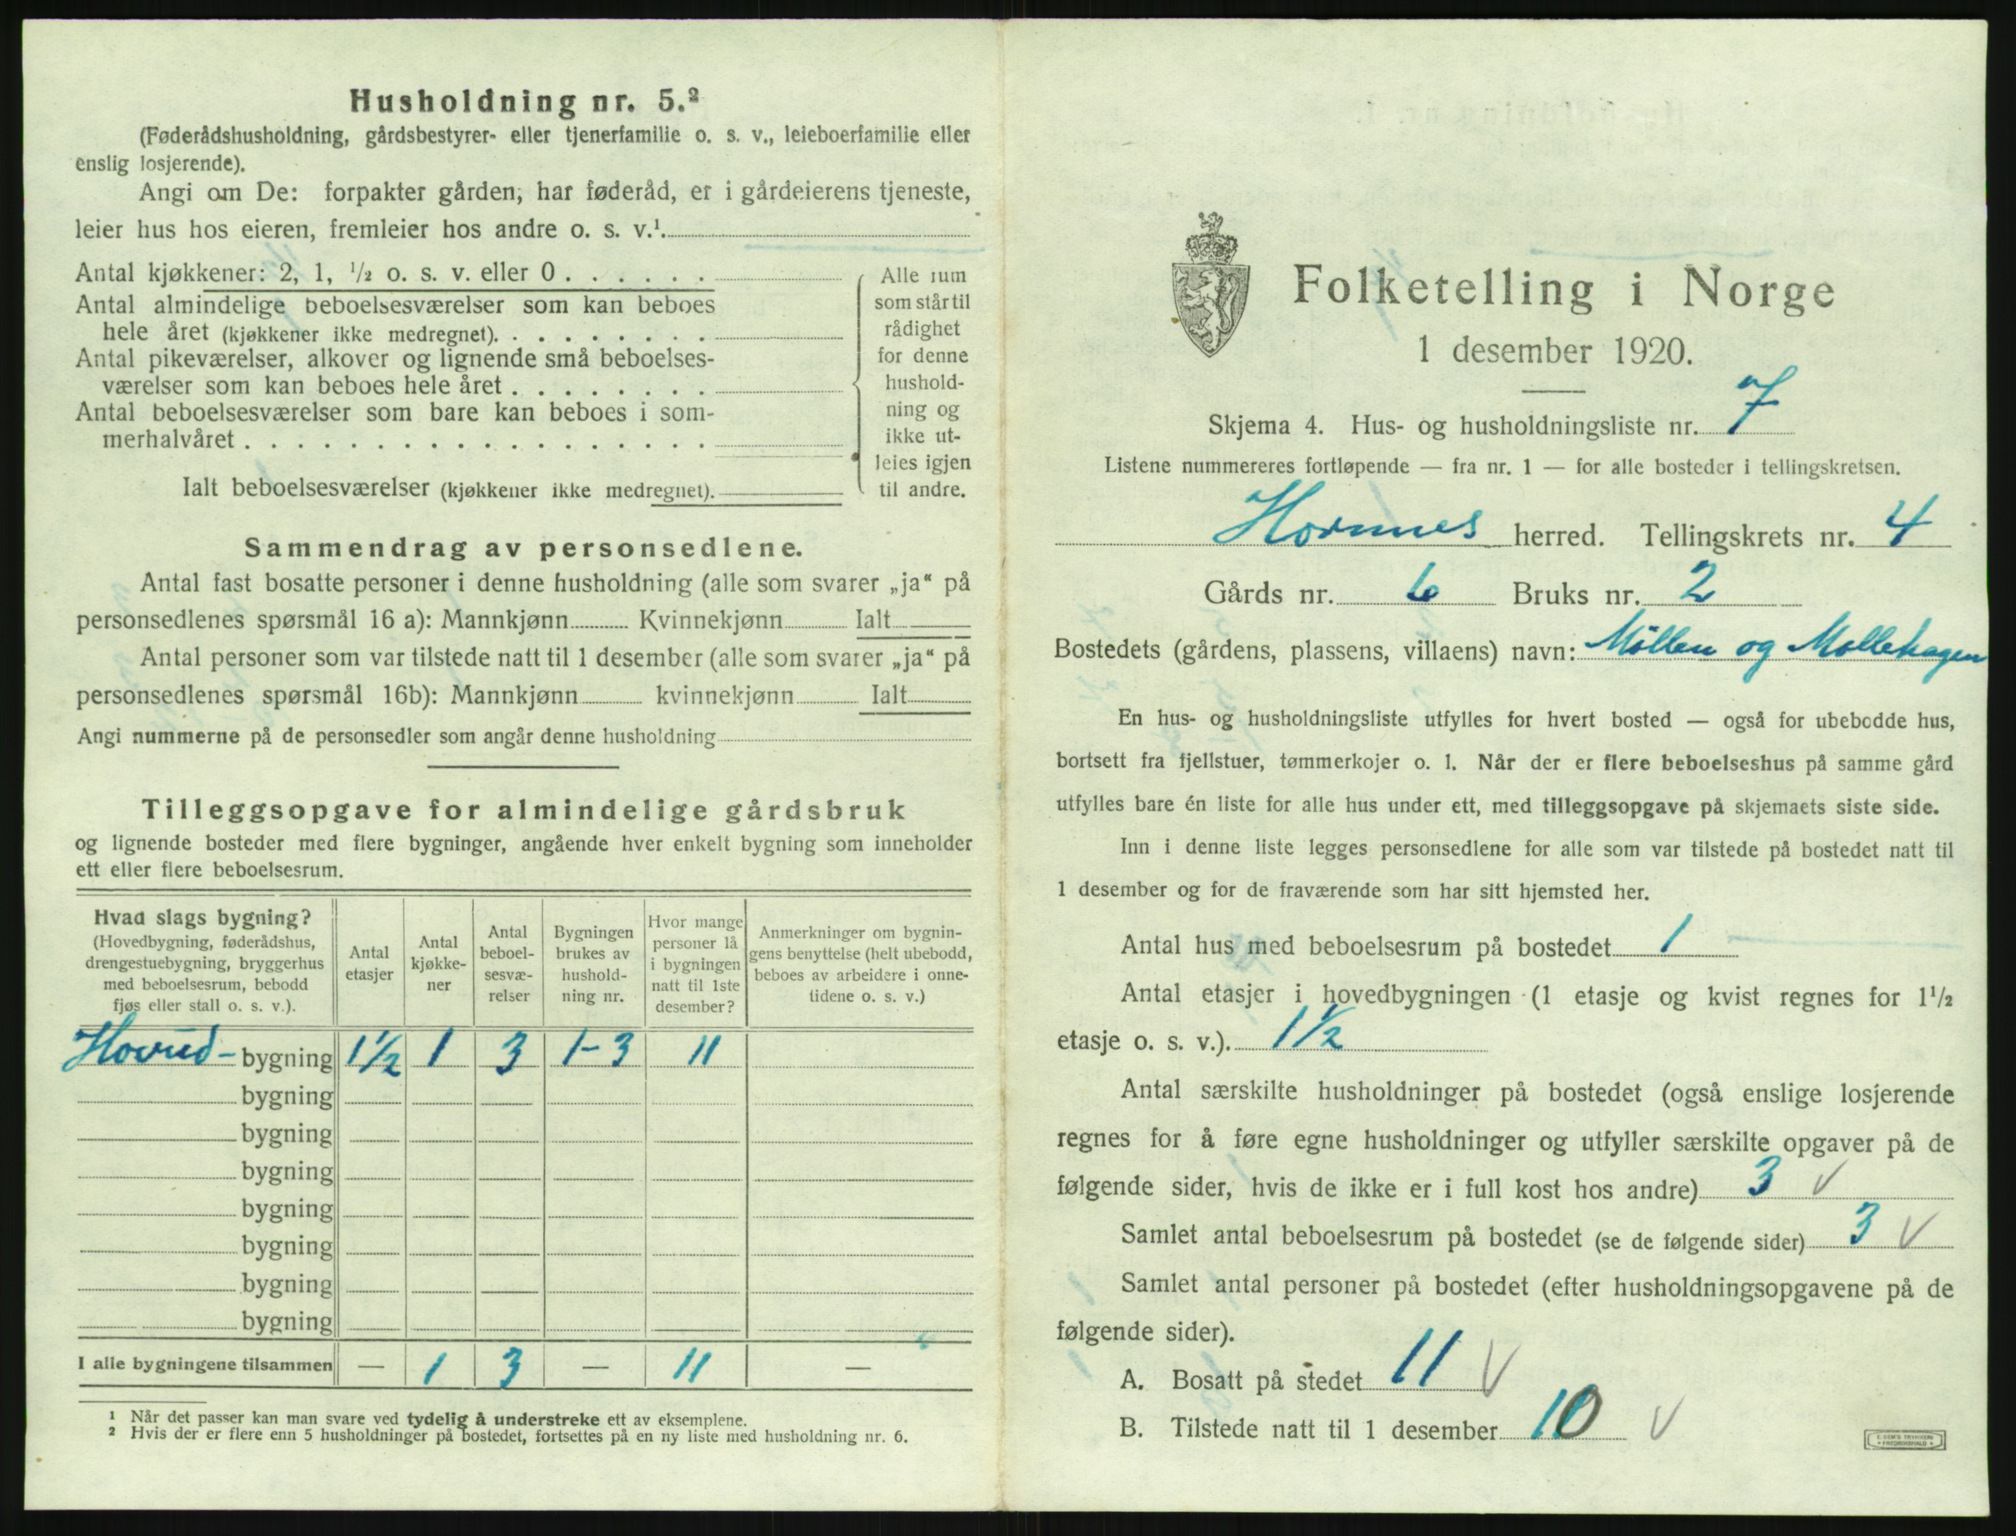 Husholdning nr. 5.²
(Føderådshusholdning, gårdsbestyrer- eller tjenerfamilie o. s. v., leieboerfamilie eller
enslig losjerende).
Angi om De: forpakter gården, har føderåd, er i gårdeierens tjeneste,
leier hus hos eieren, fremleier hos andre o. s. v.¹
Antal kjøkkener: 2, 1, ½ o. s. v. eller 0 . . . . . .
Antal almindelige beboelsesværelser som kan beboes
hele året (kjøkkener ikke medregnet). . . . . . . . .
Antal pikeværelser, alkover og lignende små beboelses-
værelser som kan beboes hele året . . . . . . . .
Antal beboelsesværelser som bare kan beboes i som-
merhalvåret . . . . . . . . . . . . . . . . . .
Ialt beboelsesværelser (kjøkkener ikke medregnet).
Alle rum
som står til
rådighet
for denne
hushold-
ning og
ikke ut-
leies igjen
til andre.
Sammendrag av personsedlene.
Antal fast bosatte personer i denne husholdning (alle som svarer „ja“ på
personsedlenes spørsmål 16 a): Mannkjønn Kvinnekjønn Ialt
Antal personer som var tilstede natt til 1 desember (alle som svarer „ja“ på
personsedlenes spørsmål 16b): Mannkjønn kvinnekjønn Ialt
Angi nummerne på de personsedler som angår denne husholdning
Tilleggsopgave for almindelige gårdsbruk
og lignende bosteder med flere bygninger, angående hver enkelt bygning som inneholder
ett eller flere beboelsesrum.
Hvad slags bygning?
(Hovedbygning, føderådshus,
drengestuebygning, bryggerhus
med beboelsesrum, bebodd
fjøs eller stall o. s. v.).
Antal
etasjer
Antal
kjøkke-
ner
Antal
beboel-
sesvæ-
relser
Bygningen
brukes av
hushold-
ning nr.
Hvor mange
personer lå
i bygningen
natt til 1ste
desember?
Anmerkninger om bygnin-
gens benyttelse (helt ubebodd,
beboes av arbeidere i onne-
tidene o. s. v.)
Hovud- bygning 1½ 1 3 1-3 11
bygning
bygning
bygning
bygning
bygning
bygning
bygning
I alle bygningene tilsammen — 1 3 — 11 —
¹ Når det passer kan man svare ved tydelig å understreke ett av eksemplene.
² Hvis der er flere enn 5 husholdninger på bostedet, fortsettes på en ny liste med husholdning nr. 6.
Folketelling i Norge
1 desember 1920.
Skjema 4. Hus- og husholdningsliste nr. 7
Listene nummereres fortløpende — fra nr. 1 — for alle bosteder i tellingskretsen.
Hornnes herred. Tellingskrets nr. 4
Gårds nr. 6 Bruks nr. 2
Bostedets (gårdens, plassens, villaens) navn: Møllen og Møllehagen
En hus- og husholdningsliste utfylles for hvert bosted — også for ubebodde hus,
bortsett fra fjellstuer, tømmerkojer o. l. Når der er flere beboelseshus på samme gård
utfylles bare én liste for alle hus under ett, med tilleggsopgave på skjemaets siste side.
Inn i denne liste legges personsedlene for alle som var tilstede på bostedet natt til
1 desember og for de fraværende som har sitt hjemsted her.
Antal hus med beboelsesrum på bostedet 1
Antal etasjer i hovedbygningen (1 etasje og kvist regnes for 1½
etasje o. s. v.). 1½
Antal særskilte husholdninger på bostedet (også enslige losjerende
regnes for å føre egne husholdninger og utfyller særskilte opgaver på de
følgende sider, hvis de ikke er i full kost hos andre) 3 V
Samlet antal beboelsesrum på bostedet (se de følgende sider) 3 V
Samlet antal personer på bostedet (efter husholdningsopgavene på de
følgende sider).
A. Bosatt på stedet 11 V
B. Tilstede natt til 1 desember 10 V
E. SEM'S TRYKKERI
FREDRIKSHALD